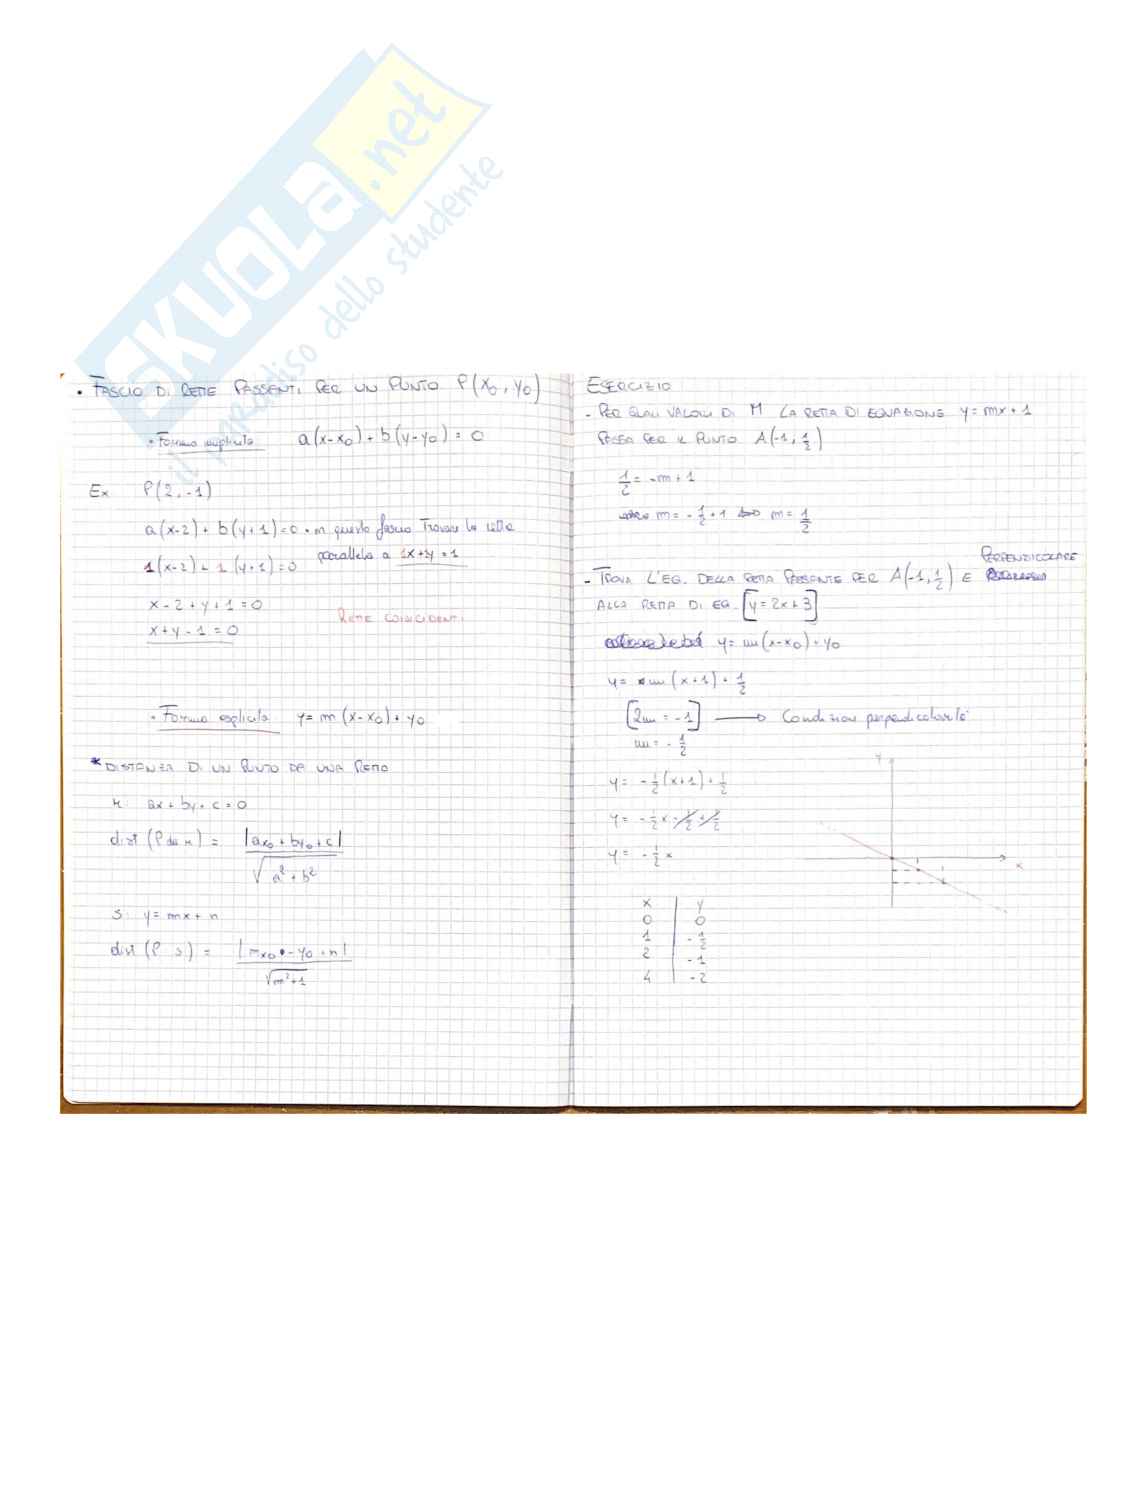 SKUOLA.net
il paradiso dello studente
• FASCIO DI RETTE PASSENTI PER UN PUNTO P(x₀, y₀)
• Forma implicita a(x-x₀) + b(y-y₀) = 0
Ex P(2, -1)
a(x-2) + b(y+1) = 0 • in questo fascio Trovare la retta
parallela a 1x+y=1
1(x-2) + 1(y+1) = 0
x - 2 + y + 1 = 0
x + y - 1 = 0
RETTE COINCIDENTI
• Forma esplicita y = m(x-x₀) + y₀
* DISTANZA DI UN PUNTO DA UNA RETTA
r: ax + by + c = 0
dist (P da r) = |ax₀ + by₀ + c| / √(a² + b²)
s: y = mx + n
dist (P s) = |mx₀ - y₀ + n| / √(m²+1)
ESERCIZIO
- PER QUALI VALORI DI M LA RETTA DI EQUAZIONE y = mx + 1
PASSA PER IL PUNTO A(-1, 1/2)
1/2 = -m + 1
m = -1/2 + 1 m = 1/2
PERPENDICOLARE
- TROVA L'EQ. DELLA RETTA PASSENTE PER A(-1, 1/2) E
ALLA RETTA DI EQ. [y = 2x + 3]
y = m(x-x₀) + y₀
y = m(x+1) + 1/2
[2m = -1] → Condizion perpendicolarità
m = -1/2
y = -1/2(x+1) + 1/2
y = -1/2x - 1/2 + 1/2
y = -1/2x
y
x
x y
0 0
1 -1/2
2 -1
4 -2